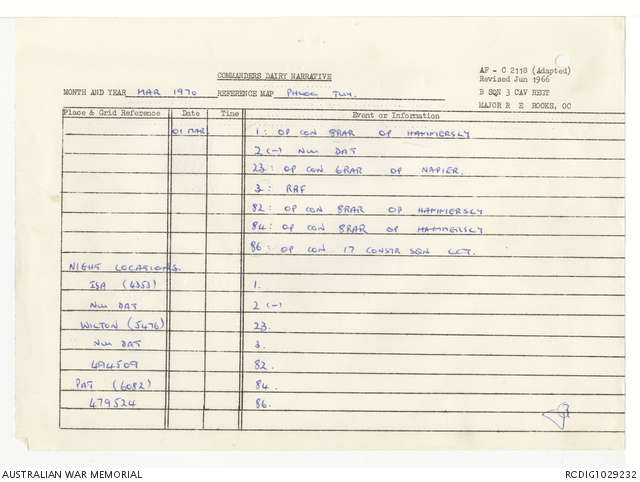 COMMANDERS DAIRY NARRATIVE
AF - C 2118 (Adapted)
Revised Jun 1966
MONTH AND YEAR MAR 1970 REFERENCE MAP PHUOC TUY.
B SQN 3 CAV REGT
MAJOR R E ROOKS, OC
Place & Grid Reference Date Time Event or Information
01 MAR 1: OP CON 8RAR OP HAMMERSLY
2 (-) NUI DAT
23: OP CON 6RAR OP NAPIER.
3: RAF
82: OP CON 8RAR OP HAMMERSLY
84: OP CON 8RAR OP HAMMERSLY
86: OP CON 17 CONSTR SQN LCT.
NIGHT LOCATIONS.
ISA (4353) 1.
NUI DAT 2 (-)
WILTON (5476) 23.
NUI DAT 3.
494509 82.
PAT (6082) 84.
479524 86.
AUSTRALIAN WAR MEMORIAL RCDIG1029232